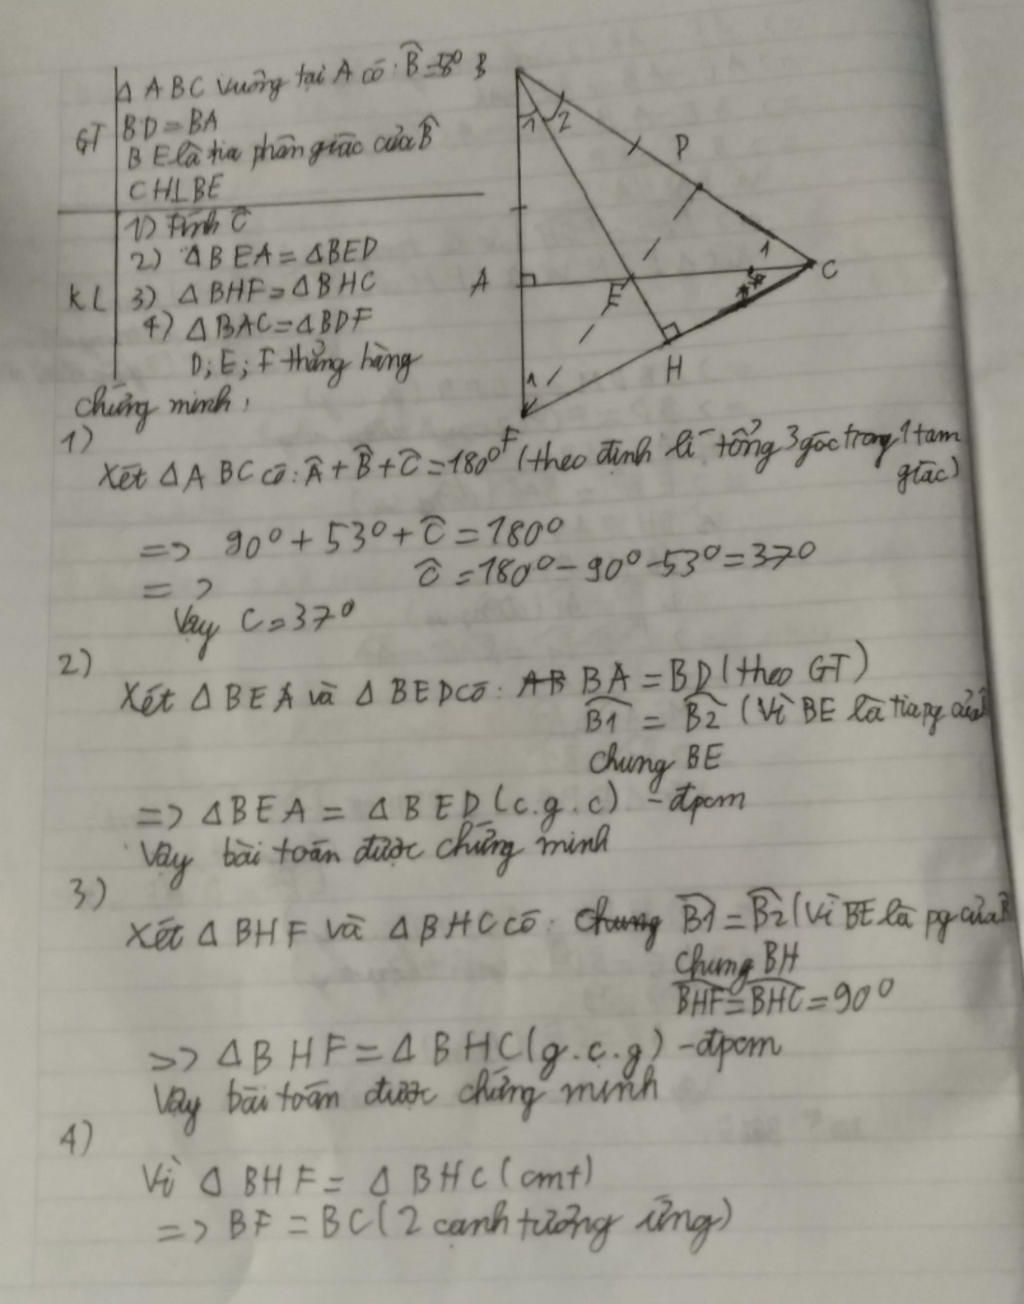 Δ ABC vuông tại A có: B̂ = 53° B
GT BD = BA
BE là tia phân giác của B̂
CH⊥BE
1) Tính Ĉ
2) ΔBEA = ΔBED
KL 3) ΔBHF = ΔBHC
4) ΔBAC = ΔBDF
D; E; F thẳng hàng
1 2
D
1
A
E
C
H
1
F
Chứng minh:
1)
Xét ΔABC có: Â + B̂ + Ĉ = 180° (theo định lí tổng 3 góc trong 1 tam giác)
=> 90° + 53° + Ĉ = 180°
=> Ĉ = 180° - 90° - 53° = 37°
Vậy C = 37°
2)
Xét ΔBEA và ΔBED có: AB BA = BD (theo GT)
B̂1 = B̂2 (Vì BE là tia pg của B̂
chung BE
=> ΔBEA = ΔBED (c.g.c) - đpcm
Vậy bài toán được chứng minh
3)
Xét ΔBHF và ΔBHC có: Chung B̂1 = B̂2 (Vì BE là pg của B̂
chung BH
BHF = BHC = 90°
=> ΔBHF = ΔBHC (g.c.g) - đpcm
Vậy bài toán được chứng minh
4)
Vì ΔBHF = ΔBHC (cmt)
=> BF = BC (2 cạnh tương ứng)